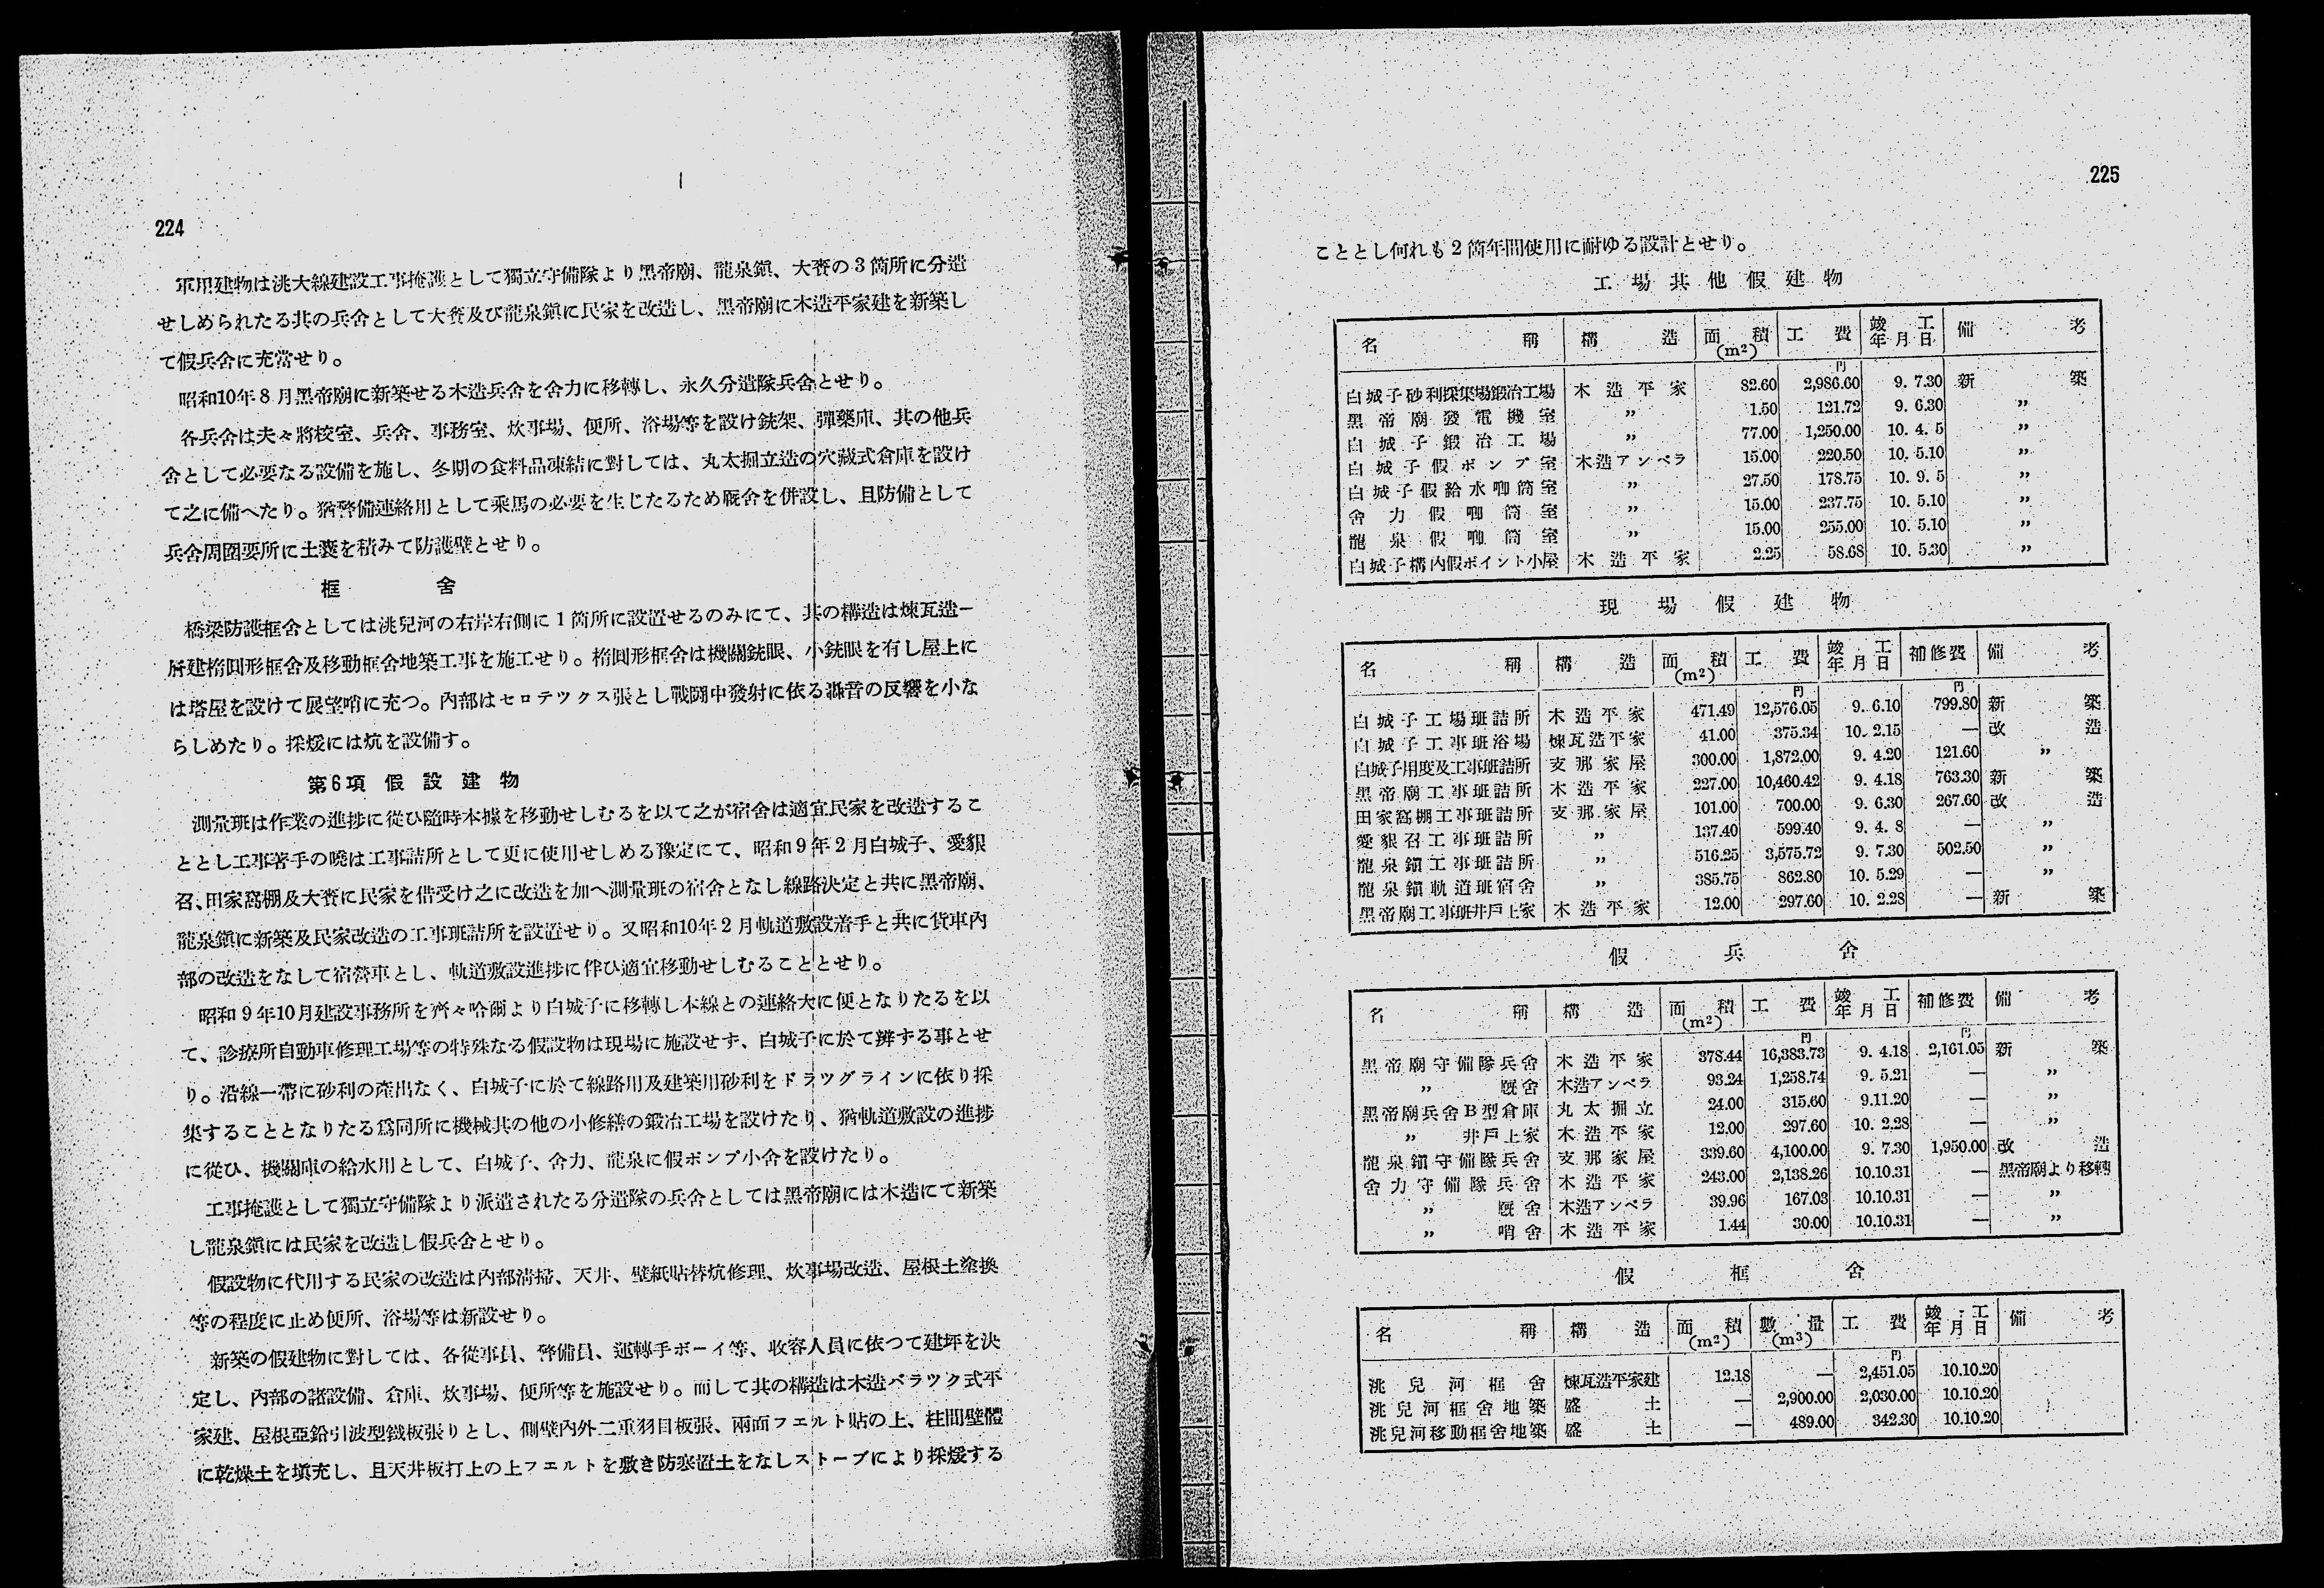 224
軍用建物は洮大線建設工事掩護として獨立守備隊より黑帝廟、龍泉鎭、大賚の3箇所に分遣
せしめられたる其の兵舍として大賚及び龍泉鎭に民家を改造し、黑帝廟に木造平家建を新築し
て假兵舍に充當せり。
昭和10年8月黑帝廟に新築せる木造兵舍を舍力に移轉し、永久分遣隊兵舍とせり。
各兵舍は夫々將校室、兵舍、事務室、炊事場、便所、浴場等を設け銃架、彈藥庫、其の他兵
舍として必要なる設備を施し、冬期の食料品凍結に對しては、丸太掘立造の穴藏式倉庫を設け
て之に備へたり。猶警備連絡用として乘馬の必要を生じたるため厩舍を併設し、且防備として
兵舍周圍要所に土嚢を積みて防護壁とせり。
框 舍
橋梁防護框舍としては洮兒河の右岸右側に1箇所に設置せるのみにて、其の構造は煉瓦造一
層建楕圓形框舍及移動框舍地築工事を施工せり。楕圓形框舍は機關銃眼、小銃眼を有し屋上に
は塔屋を設けて展望哨に充つ。內部はセロテツクス張とし戰鬪中發射に依る濁音の反響を小な
らしめたり。採煖には炕を設備す。
第6項 假設建物
測量班は作業の進捗に從ひ隨時本據を移動せしむるを以て之が宿舍は適宜民家を改造するこ
ととし工事著手の曉は工事詰所として更に使用せしめる豫定にて、昭和9年2月白城子、愛貎
召、田家窩棚及大賚に民家を借受け之に改造を加へ測量班の宿舍となし線路決定と共に黑帝廟、
龍泉鎭に新築及民家改造の工事班詰所を設置せり。又昭和10年2月軌道敷設着手と共に貨車內
部の改造をなして宿營車とし、軌道敷設進捗に伴ひ適宜移動せしむることとせり。
昭和9年10月建設事務所を齊々哈爾より白城子に移轉し本線との連絡大に便となりたるを以
て、診療所自動車修理工場等の特殊なる假設物は現場に施設せず、白城子に於て辨する事とせ
り。沿線一帶に砂利の產出なく、白城子に於て線路用及建築用砂利をドラツグラインに依り採
集することとなりたる爲同所に機械其の他の小修繕の鍛冶工場を設けたり、猶軌道敷設の進捗
に從ひ、機關庫の給水用として、白城子、舍力、龍泉に假ポンプ小舍を設けたり。
工事掩護として獨立守備隊より派遣されたる分遣隊の兵舍としては黑帝廟には木造にて新築
し龍泉鎭には民家を改造し假兵舍とせり。
假設物に代用する民家の改造は內部淸掃、天井、壁紙貼替炕修理、炊事場改造、屋根土塗換
等の程度に止め便所、浴場等は新設せり。
新築の假建物に對しては、各從事員、警備員、運轉手ボーイ等、收容人員に依つて建坪を決
定し、內部の諸設備、倉庫、炊事場、便所等を施設せり。而して其の構造は木造バラツク式平
家建、屋根亞鉛引波型鐵板張りとし、側壁內外二重羽目板張、兩面フエルト貼の上、柱間壁體
に乾燥土を塡充し、且天井板打上の上フエルトを敷き防寒置土をなしストーブにより採煖する
225
こととし何れも2箇年間使用に耐ゆる設計とせり。
工場其他假建物
名稱 構造 面積(m²) 工費 竣工年月日 備考
円
白城子砂利採集場鍛冶工場 木造平家 82.60 2,986.60 9. 7.30 新築
黑帝廟發電機室 〃 1.50 121.72 9. 6.30 〃
白城子鍛冶工場 〃 77.00 1,250.00 10. 4. 5 〃
白城子假ポンプ室 木造アンペラ 15.00 220.50 10. 5.10 〃
白城子假給水喞筒室 〃 27.50 178.75 10. 9. 5 〃
舍力假喞筒室 〃 15.00 237.75 10. 5.10 〃
龍泉假喞筒室 〃 15.00 255.00 10. 5.10 〃
白城子構內假ポイント小屋 木造平家 2.25 58.68 10. 5.30 〃
現場假建物
名稱 構造 面積(m²) 工費 竣工年月日 補修費 備考
円 円
白城子工場班詰所 木造平家 471.49 12,576.05 9. 6.10 799.80 新築
白城子工事班浴場 煉瓦造平家 41.00 375.34 10. 2.15 — 改造
白城子用度及工事班詰所 支那家屋 300.00 1,872.00 9. 4.20 121.60 〃
黑帝廟工事班詰所 木造平家 227.00 10,460.42 9. 4.18 763.30 新築
田家窩棚工事班詰所 支那家屋 101.00 700.00 9. 6.30 267.60 改造
愛貎召工事班詰所 〃 137.40 599.40 9. 4. 8 — 〃
龍泉鎭工事班詰所 〃 516.25 3,575.72 9. 7.30 502.50 〃
龍泉鎭軌道班宿舍 〃 385.75 862.80 10. 5.29 — 〃
黑帝廟工事班井戶上家 木造平家 12.00 297.60 10. 2.28 — 新築
假兵舍
名稱 構造 面積(m²) 工費 竣工年月日 補修費 備考
円 円
黑帝廟守備隊兵舍 木造平家 378.44 16,383.73 9. 4.18 2,161.05 新築
〃 厩舍 木造アンペラ 93.24 1,258.74 9. 5.21 — 〃
黑帝廟兵舍B型倉庫 丸太掘立 24.00 315.60 9.11.20 — 〃
〃 井戶上家 木造平家 12.00 297.60 10. 2.28 — 〃
龍泉鎭守備隊兵舍 支那家屋 339.60 4,100.00 9. 7.30 1,950.00 改造
舍力守備隊兵舍 木造平家 243.00 2,138.26 10.10.31 — 黑帝廟より移轉
〃 厩舍 木造アンペラ 39.96 167.03 10.10.31 — 〃
〃 哨舍 木造平家 1.44 30.00 10.10.31 — 〃
假框舍
名稱 構造 面積(m²) 數量(m³) 工費 竣工年月日 備考
円
洮兒河框舍 煉瓦造平家建 12.18 — 2,451.05 10.10.20
洮兒河框舍地築 盛土 — 2,900.00 2,030.00 10.10.20
洮兒河移動框舍地築 盛土 — 489.00 342.30 10.10.20